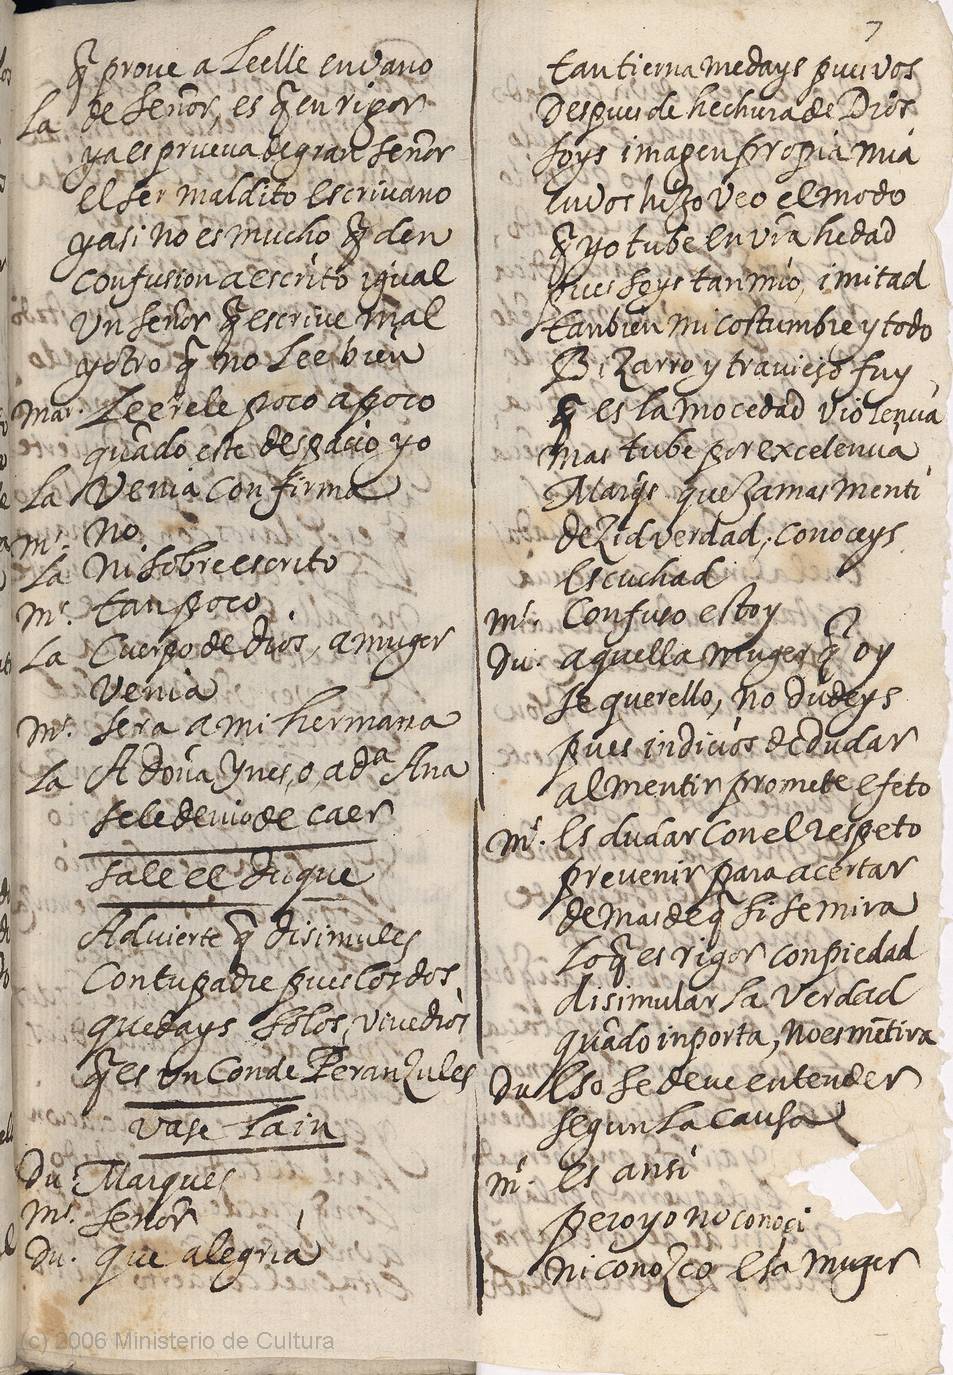 7
q̃ proue a Leelle en vano
La de señor, es q̃ en rigor
ya es prueua de gran señor
el ser maldito escriuano
y asi no es mucho q̃ den
confusion a escrito igual
un señor q̃ escriue mal
y otro q̃ no Lee bien
Mar. Leerele poco a poco
quãdo este despacio yo
La Venia con firma
m̃s. no
La Ni sobre escrito
m̃s. tan poco
La Cuerpo de dios, a muger
venia
m̃s. sera a mi hermana
La A doña ynes, o, a dª Ana
se le deuio de caer
sale el Duque
Advierte q̃ disimules
con tu padre pues los dos
quedays solos, viue dios
q̃ es un Conde Peranzules
vase Lain
Du. Marques
m̃s. señor
Du. que alegria
tan tierna me days pues vos
Despues de hechura de Dios
soys imagen propia mia
en vos hijo veo el modo
q̃ yo tube en vr̃a hedad
pues soys tan mio, imitad
tanbien mi costumbre, y todo
Bizarro y travieso fuy
q̃ es la mocedad violencia
mas tube por excelencia
Marqs que jamas menti
dezid verdad, conoceys
escuchad
m̃s. Confuso estoy
Du. aquella muger q̃ oy
se querello, no dudeys
pues indicios de dudar
al mentir promete efeto
m̃s. es dudar con el respeto
prevenir para acertar
de mas de q̃ si se mira
lo q̃ es rigor con piedad
disimular la verdad
quãdo inporta, no es mẽtira
Du eso se deue entender
segun la causa
m̃s. es ansi
pero yo no conoci
ni conozco esa muger
(c) 2006 Ministerio de Cultura